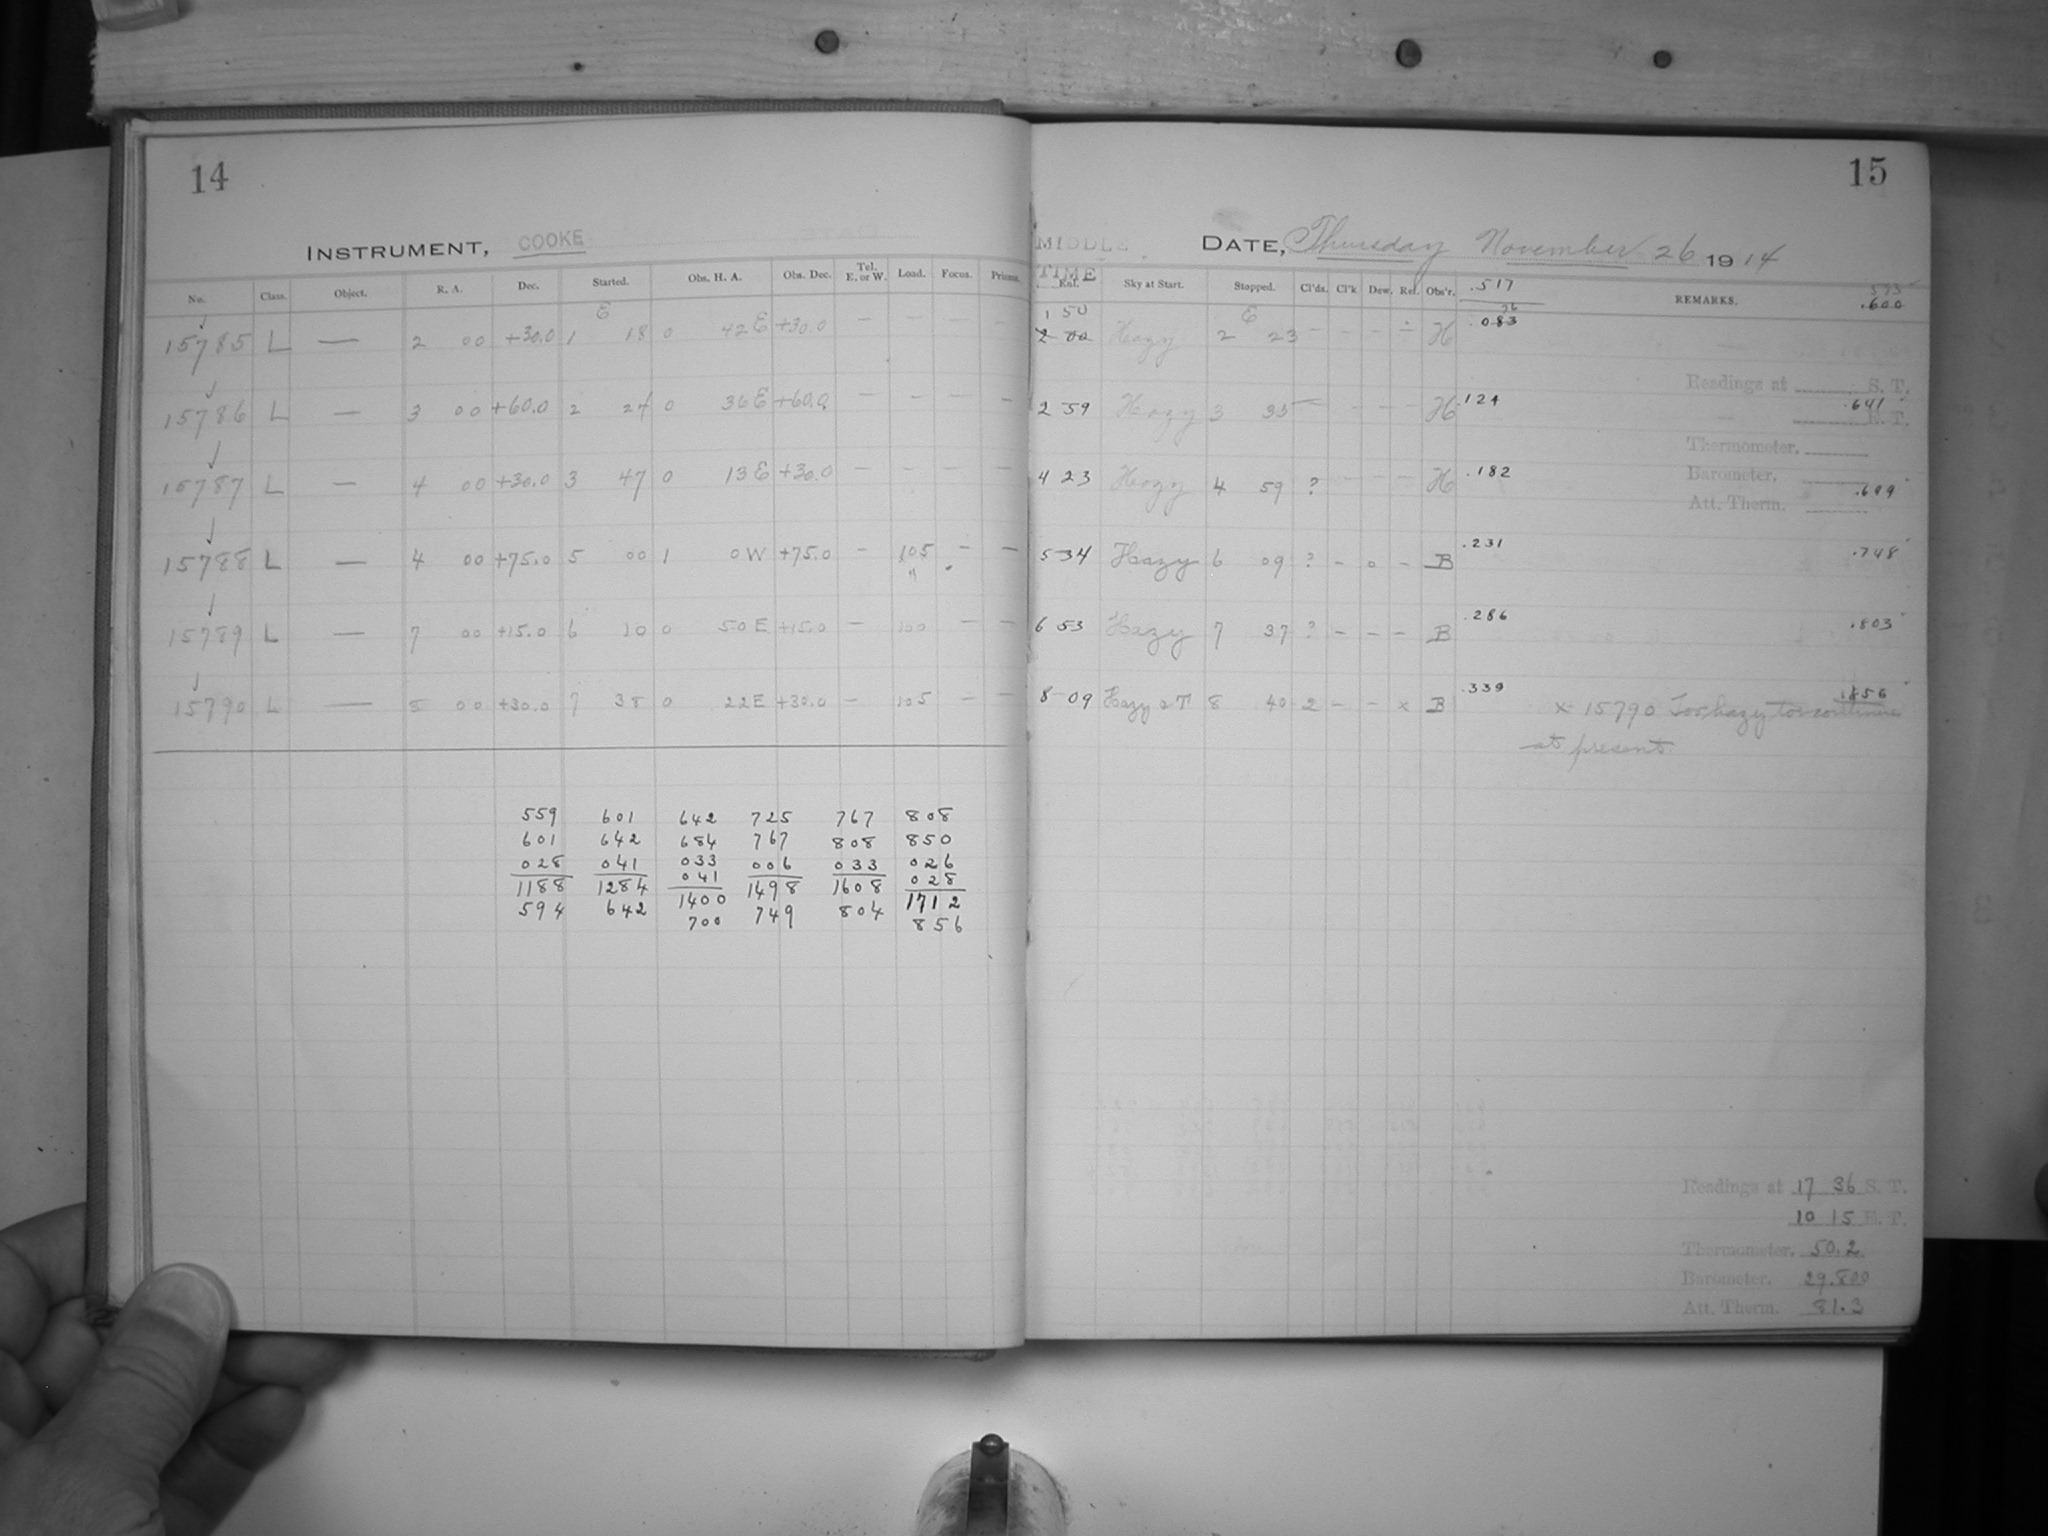 14
INSTRUMENT, COOKE
No. Class. Object. R. A. Dec. Started. Obs. H. A. Obs. Dec. Tel. E. or W. Load. Focus. Prisms.
E
15785 L — 2 00 +30.0 1 18 0 42 E +30.0 — — — —
15786 L — 3 00 +60.0 2 24 0 36 E +60.0 — — — —
15787 L — 4 00 +30.0 3 47 0 13 E +30.0 — — — —
15788 L — 4 00 +75.0 5 00 1 0 W +75.0 — 105 — —
15789 L — 7 00 +15.0 6 10 0 50 E +15.0 — 100 — —
15790 L — 5 00 +30.0 7 38 0 22 E +30.0 — 105 — —
559 601 642 725 767 808
601 642 684 767 808 850
028 041 033 006 033 026
041 028
1188 1284 1400 1498 1608 1712
594 642 700 749 804 856
15
MIDDLE TIME
DATE, Thursday November 26 1914
Exf. Sky at Start. Stopped. Cl'ds. Cl'k Dew. Ref. Obs'r. .517 REMARKS. .600
1 50 E
2 00 Hazy 2 23 — — — — H .083
Readings at S. T.
.641
2 59 Hazy 3 35 — — — — H .124
H. T.
Thermometer.
4 23 Hazy 4 59 ? — — — H .182
Barometer.
.699
Att. Therm.
5 34 Hazy 6 09 ? — o — B .231 .748
6 53 Hazy 7 37 ? — — — B .286 .803
8 09 Hazy & T 8 40 2 — — x B .339 x 15790 Too hazy to continue
at present.
Readings at 17 36 S. T.
10 15 H. T.
Thermometer. 50.2
Barometer. 29.800
Att. Therm. 81.3